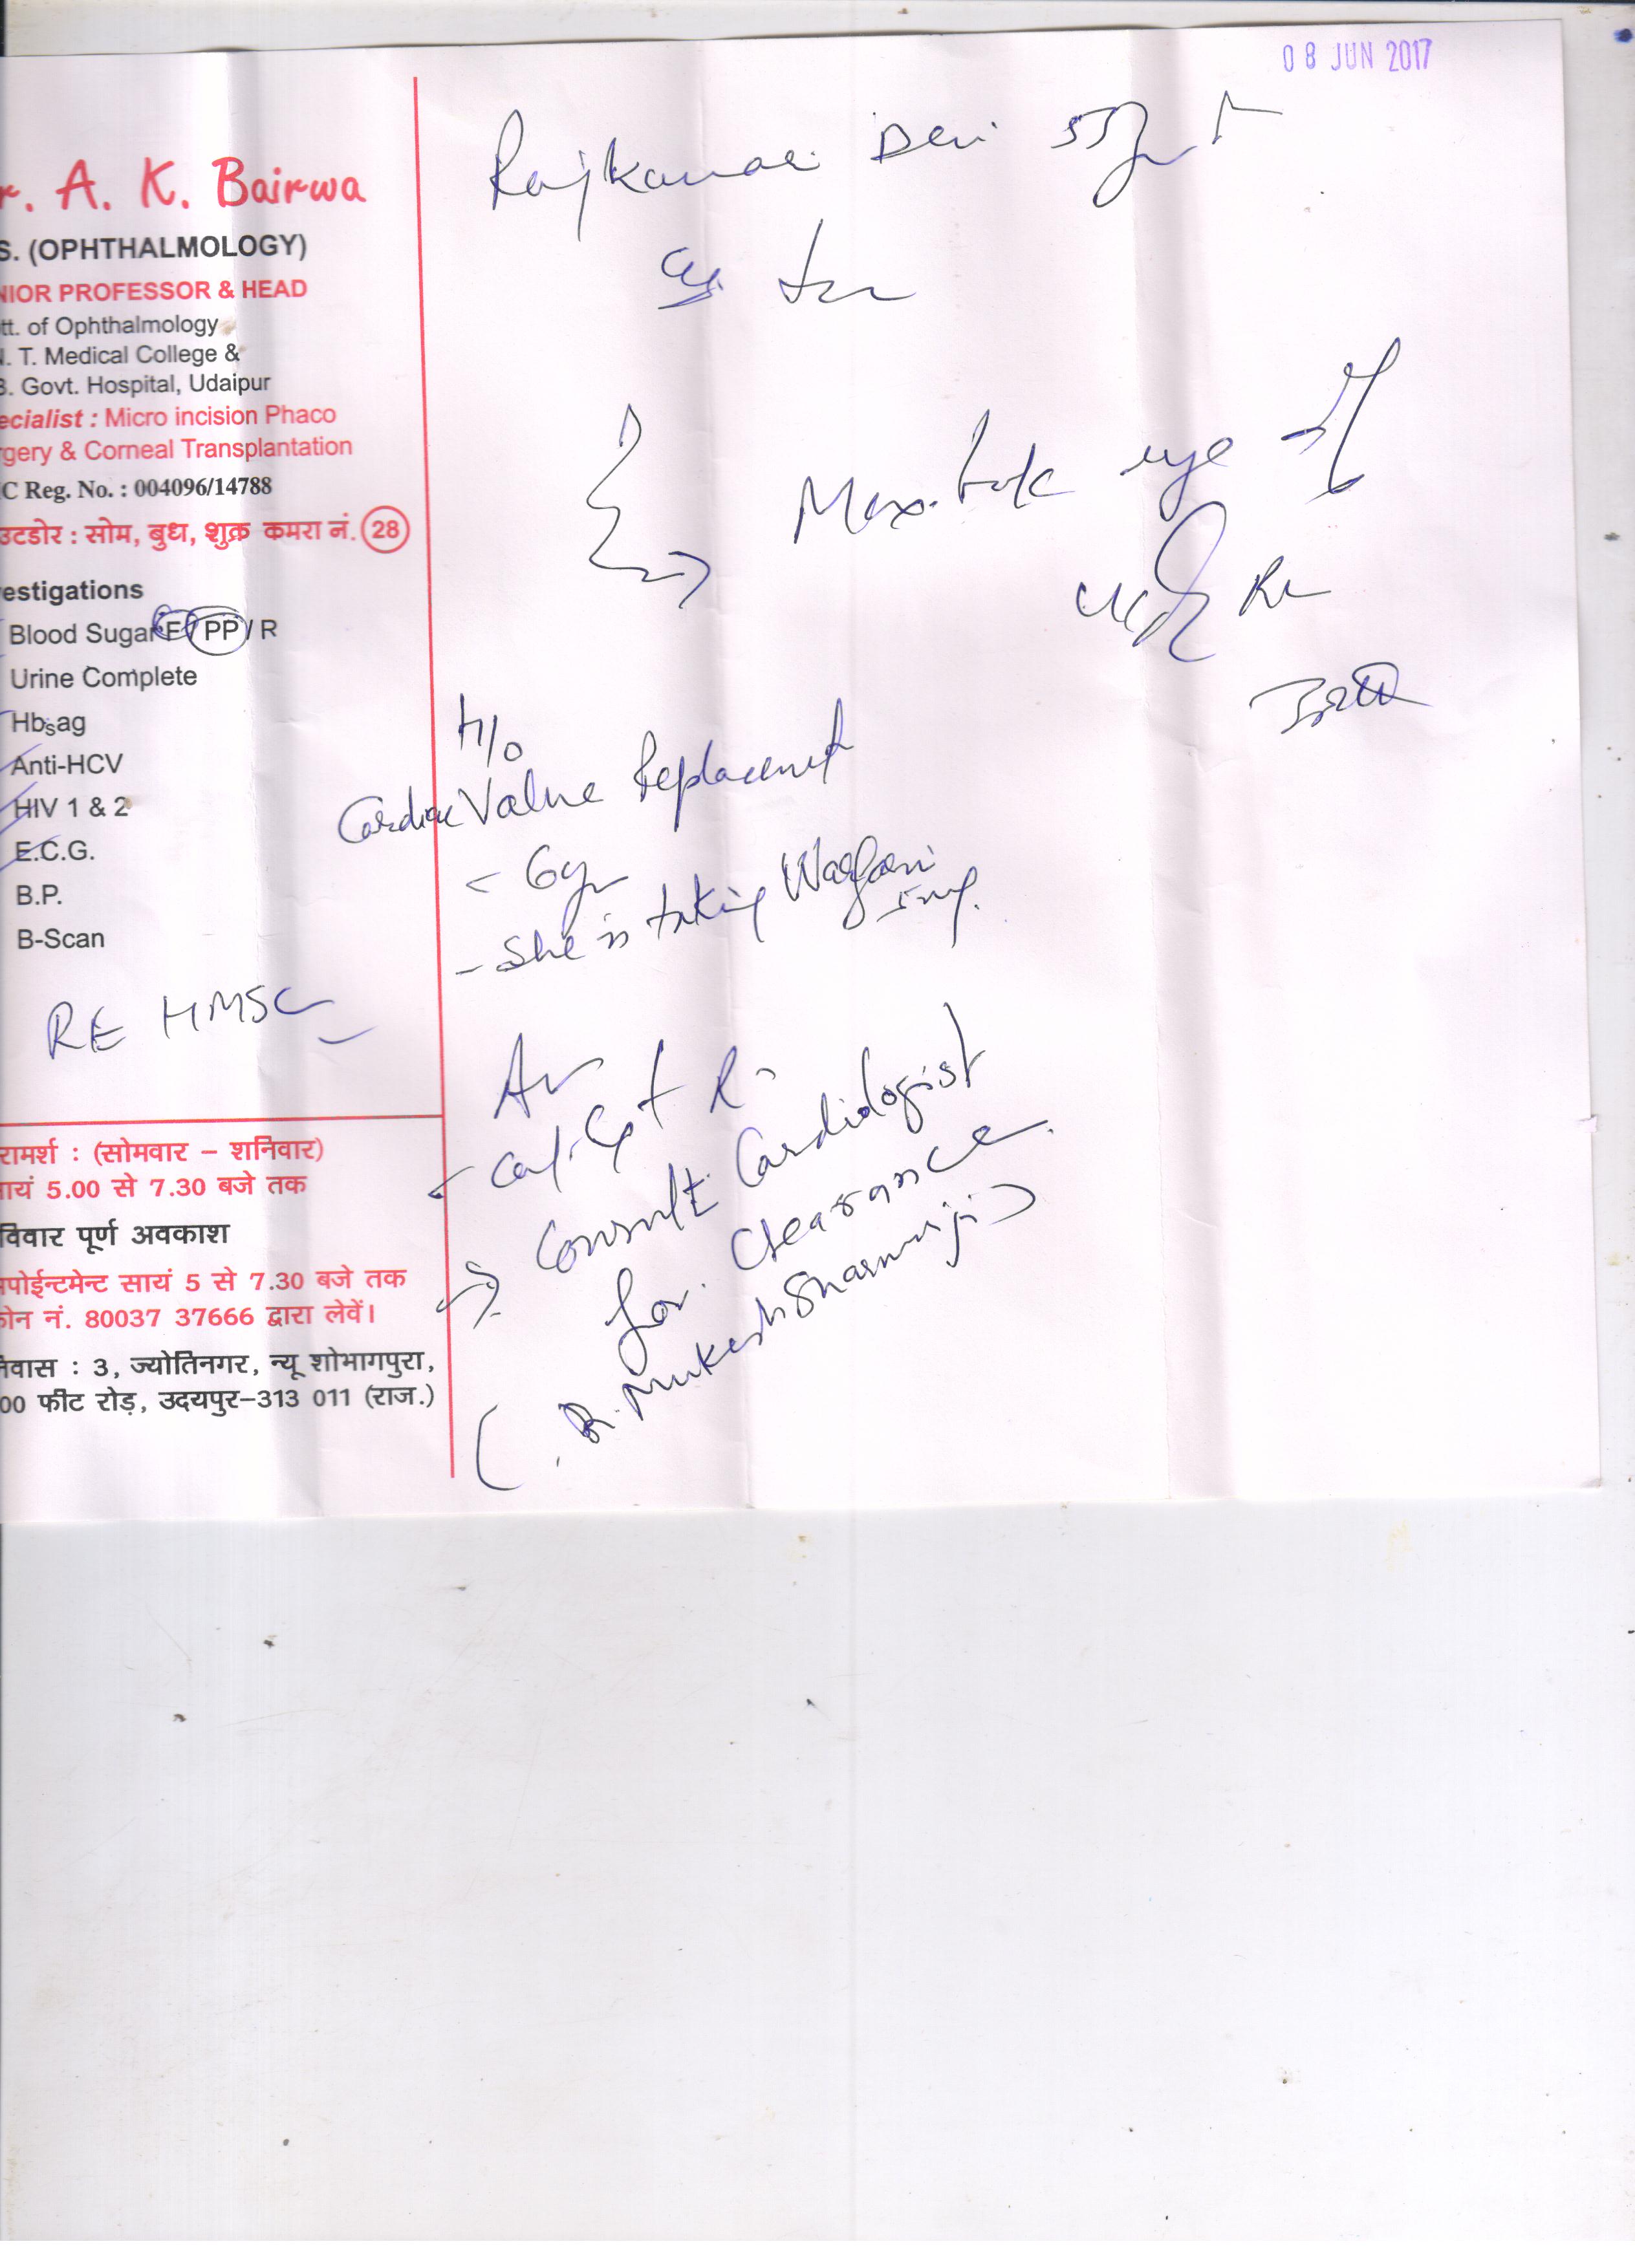 08 JUN 2017
r. A. K. Bairwa
S. (OPHTHALMOLOGY)
NIOR PROFESSOR & HEAD
tt. of Ophthalmology
. T. Medical College &
B. Govt. Hospital, Udaipur
ecialist : Micro incision Phaco
rgery & Corneal Transplantation
C Reg. No. : 004096/14788
उटडोर : सोम, बुध, शुक्र कमरा नं. 28
estigations
Blood Sugar F / PP / R
Urine Complete
Hbsag
Anti-HCV
HIV 1 & 2
E.C.G.
B.P.
B-Scan
RE HMSC
रामर्श : (सोमवार – शनिवार)
ायं 5.00 से 7.30 बजे तक
विवार पूर्ण अवकाश
पोईन्टमेन्ट सायं 5 से 7.30 बजे तक
ोन नं. 80037 37666 द्वारा लेवें।
नेवास : 3, ज्योतिनगर, न्यू शोभागपुरा,
00 फीट रोड़, उदयपुर–313 011 (राज.)
Rajkumari Devi 55yr
eye
H/o
Cardiac Valve Replacement
- 6yr
- She is taking Warfarin
5mg.
Adv
Consult Cardiologist
for Clearance
(Dr. Mukesh Sharma ji)